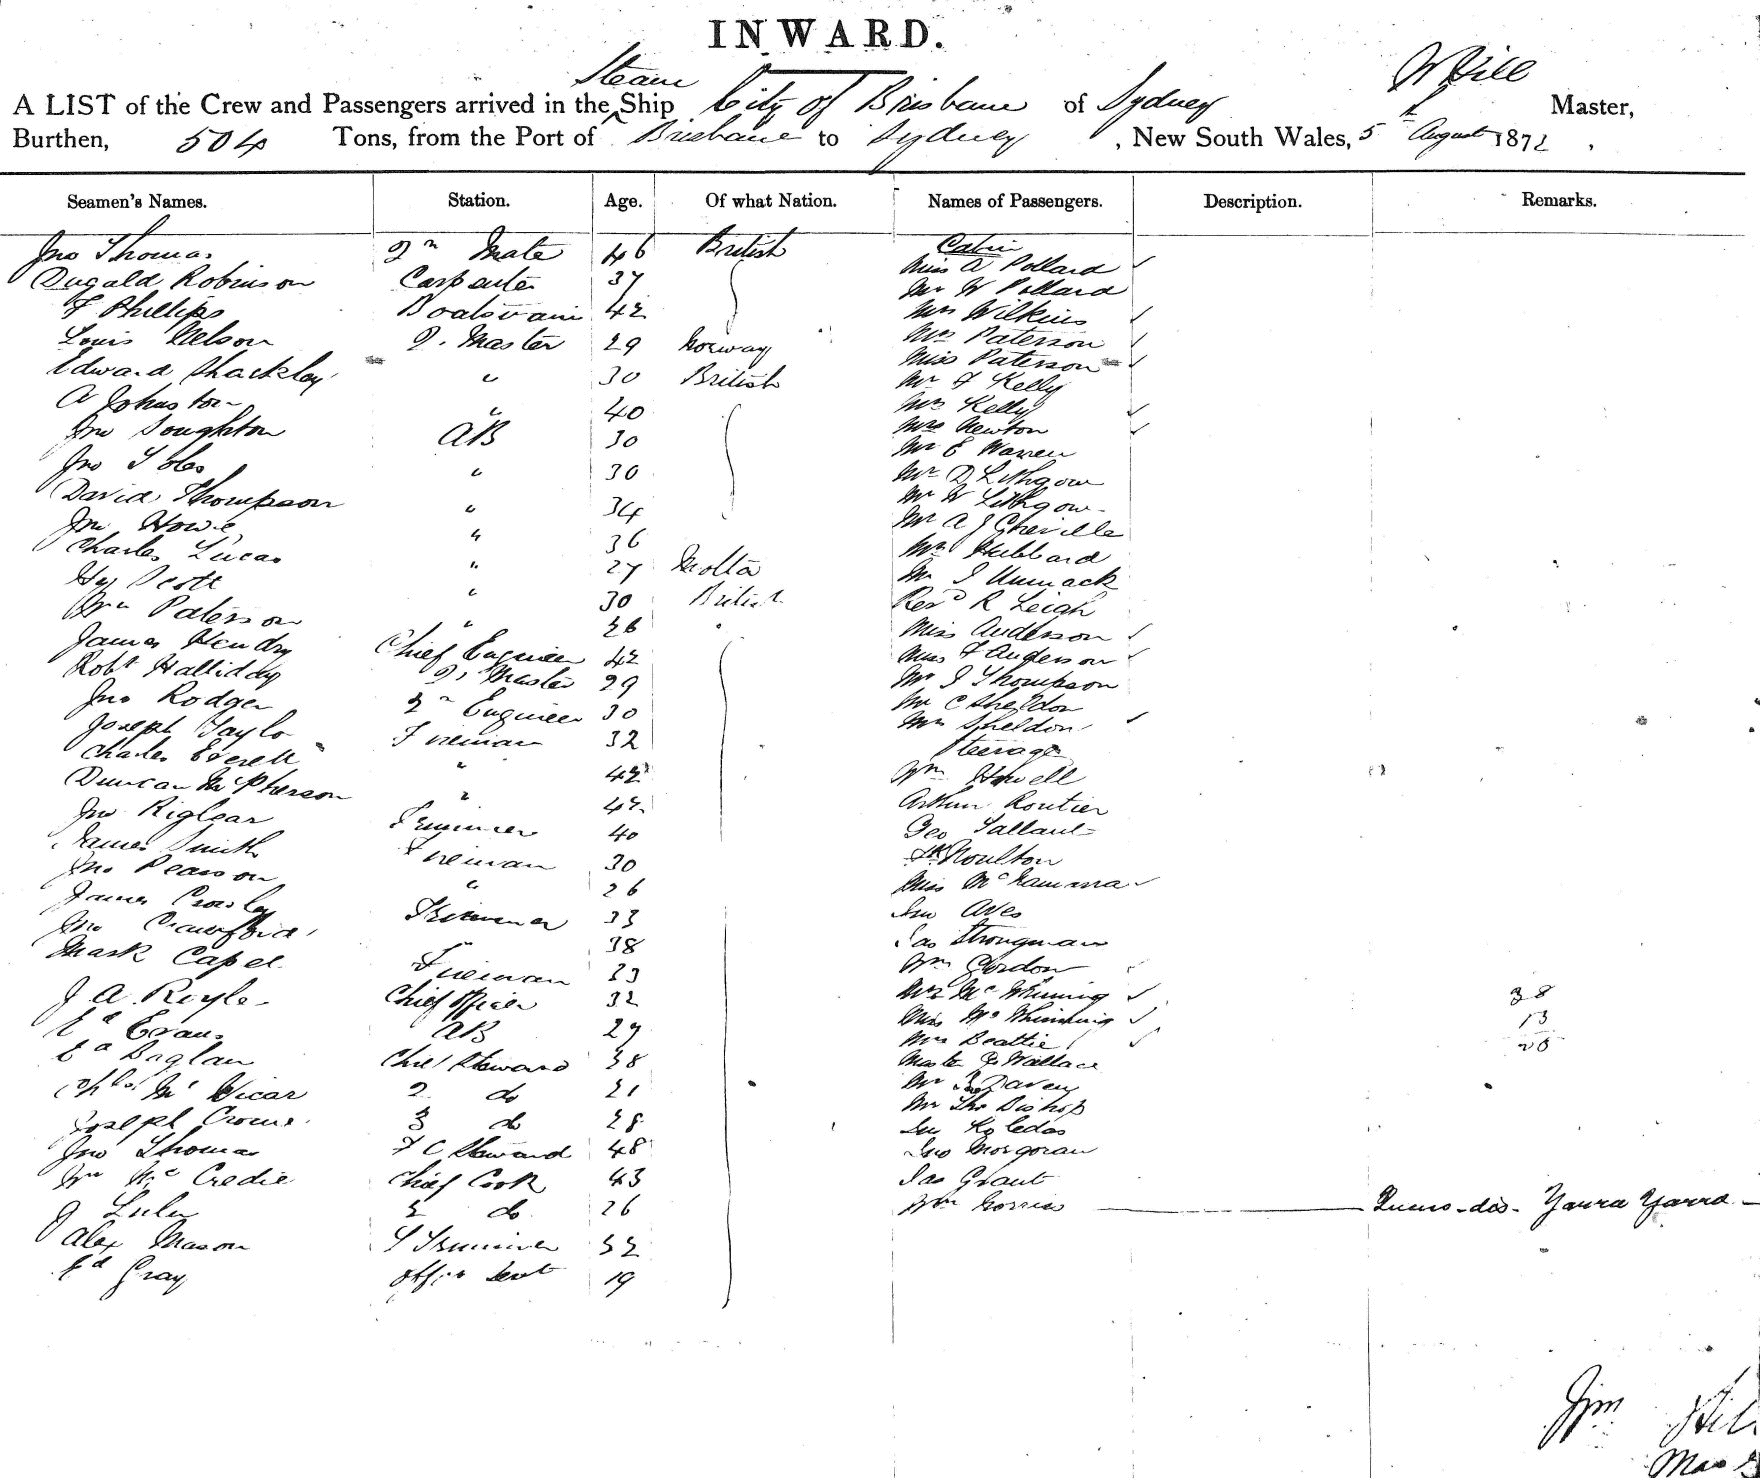 INWARD.
Steam W Hill
A LIST of the Crew and Passengers arrived in the Ship City of Brisbane of Sydney Master,
Burthen, 504 Tons, from the Port of Brisbane to Sydney, New South Wales, 5th August 1872.
Seamen's Names. Station. Age. Of what Nation. Names of Passengers. Description. Remarks.
Jno Thomas 2n Mate 46 British
Dugald Robinson Carpenter 37
F Phillips Boatswain 42
Louis Nelson Q. Master 29 Norway
Edward Shackley " 30 British
A Johnston " 40
Jno Soughton AB 30
Jno " 30
David Thompson " 34
Jno Howie " 36
Charles Lucas " 27 Malta
Hy Scott " 30 British
Wm Paterson " 26
James Hendry Chief Engineer 42
Robt Halliday Q. Master 29
Jno Rodger 2n Engineer 30
Joseph Taylo Fireman 32
Charles Everett " 42
Duncan McPherson " 42
Jno Riglear 40
James Smith Fireman 30
Jno Pearson " 26
James Crosley Trimmer 33
Jno Crawford " 38
Mark Capel Fireman 23
J A Royle Chief Officer 32
Ed Evans AB 29
Ed Baglan Chief Steward 38
Chas McVicar 2 do 21
Joseph Crome 3 do 28
Jno Thomas F C Steward 48
Jno McCredie Chief Cook 43
J Lulu 2 do 26
Alex Mason Trimmer 32
Ed Gray Offic Servt 19
Cabin
Miss A Pollard
Mr W Pollard
Mrs Wilkins
Mrs Paterson
Miss Paterson
Mr F Kelly
Mrs Kelly
Mrs Newton
Mr E Warren
Mr D Lithgow
Mr W Lithgow
Mr A J Cheville
Mr Hubbard
Mr J Unmack
Revd R Leigh
Miss Anderson
Miss F Anderson
Mr J Thompson
Mr C Sheldon
Mrs Sheldon
Steerage
Wm Howell
Arthur Routier
Geo
Moulton
Miss McNamara
Jno Aves
Jas Strongman
Wm Gordon
Mrs McWhinnig
Miss McWhinnig
Mrs Beattie
Master Wallace
Mr Davey
Mr Tho Bishop
Jno
Jno
Jas Grant
Wm Morris dis- Yarra Yarra
38
13
20
Wm Hil
Mas